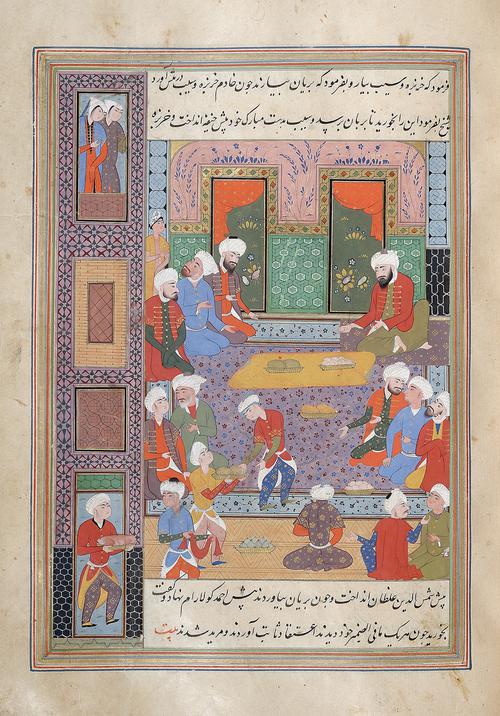 فرمود که خربزه و سیب بیار و بفرمود که بریان بیارند چون خادم خربزه و سیب در مجلس آورد
شیخ بفرمود این را بخورید تا بریان رسد و سیب بدست مبارک خود پیش خلیفه انداخت و خربزه
پیش شمس الدین غلطان انداخت و چون بریان بیاوردند پیش احمد کولارام نهاد و گفت
بخورید چون هر یک مافی الضمیر خود دیدند اعتقاد ثابت آوردند و مرید شدند بیت